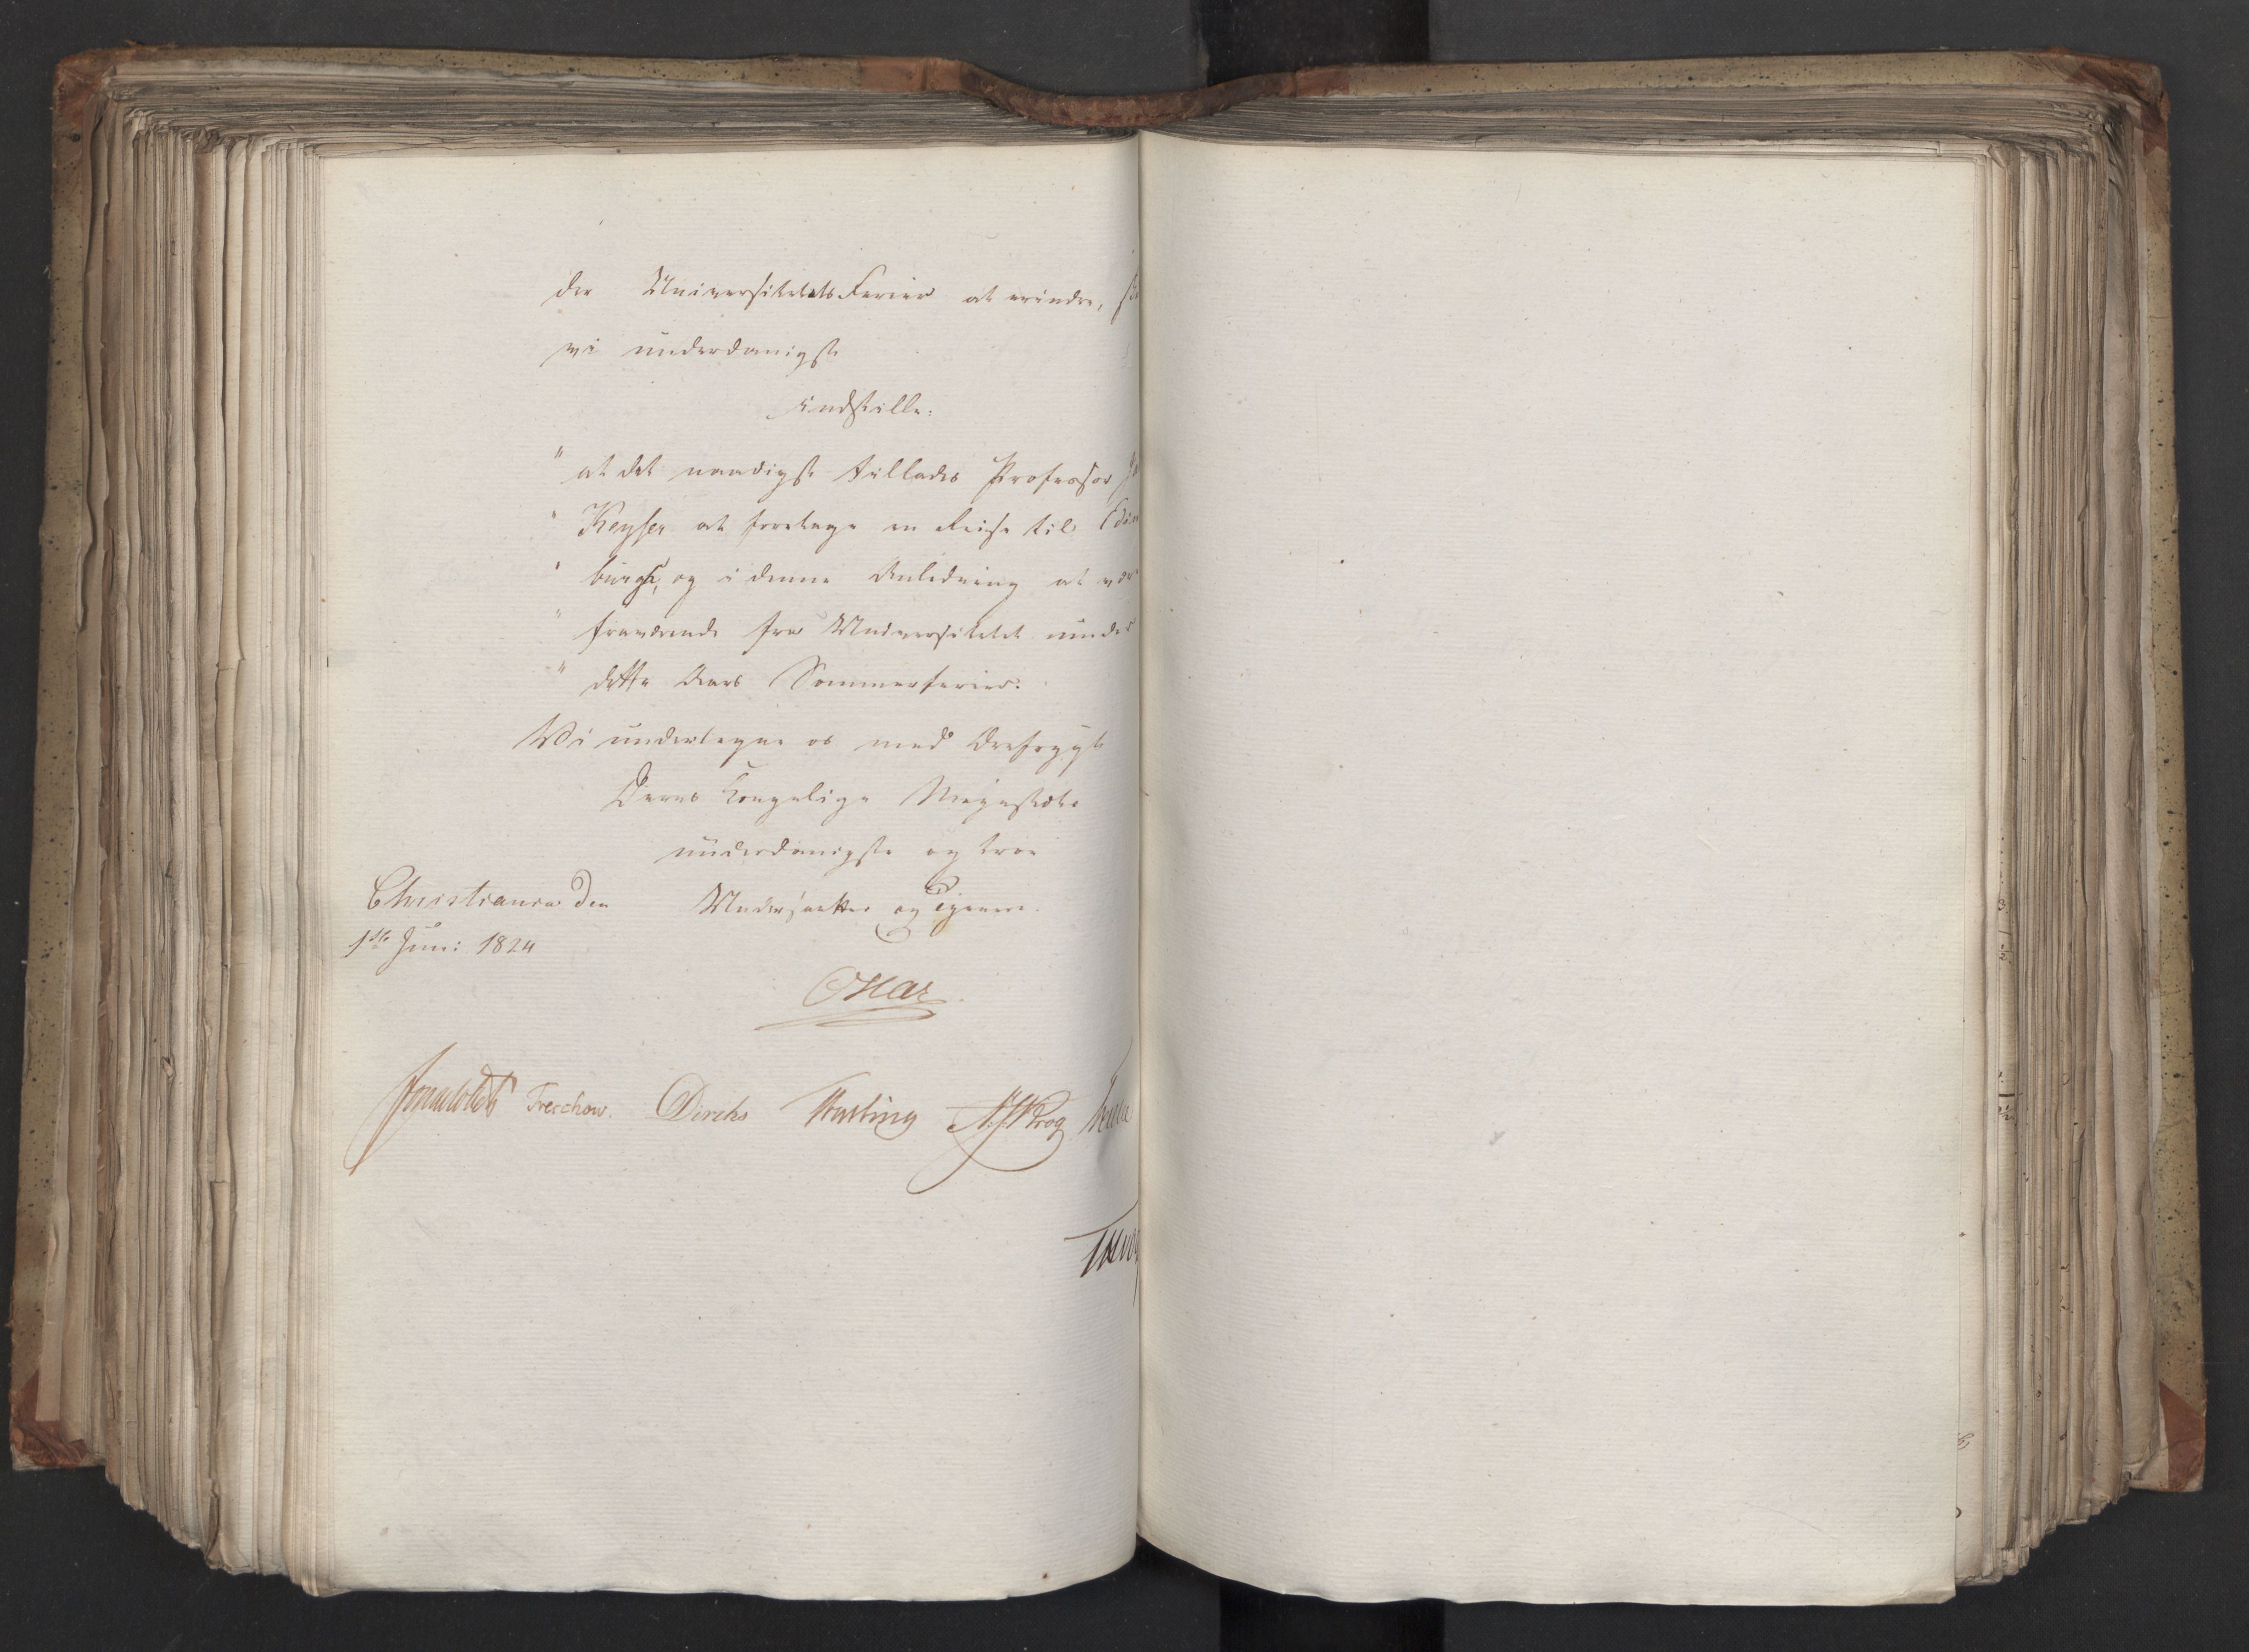 der Universitetets Ferier at erindre,
vi underdanigst
indstille:
" at det naadigst tillades Professor
" Keyser at foretage en Reise til Edin
" burgh, og i denne Anledning at være
" fraværende fra Universitetet under
" dette Aars Sommerferier.
Vi undertegne os med Ærefrygt
Deres Kongelige Majestæts
underdanigste og troe
Christiania den Undersaatter og Tjenere.
1ste Juni 1824
Oscar
Treschow. Diriks Motzfeldt